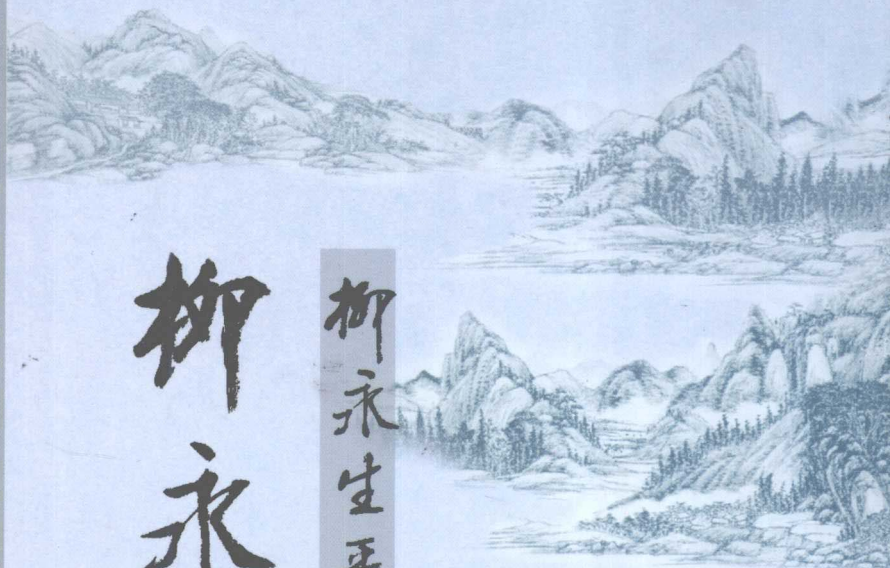 柳永
柳永生平